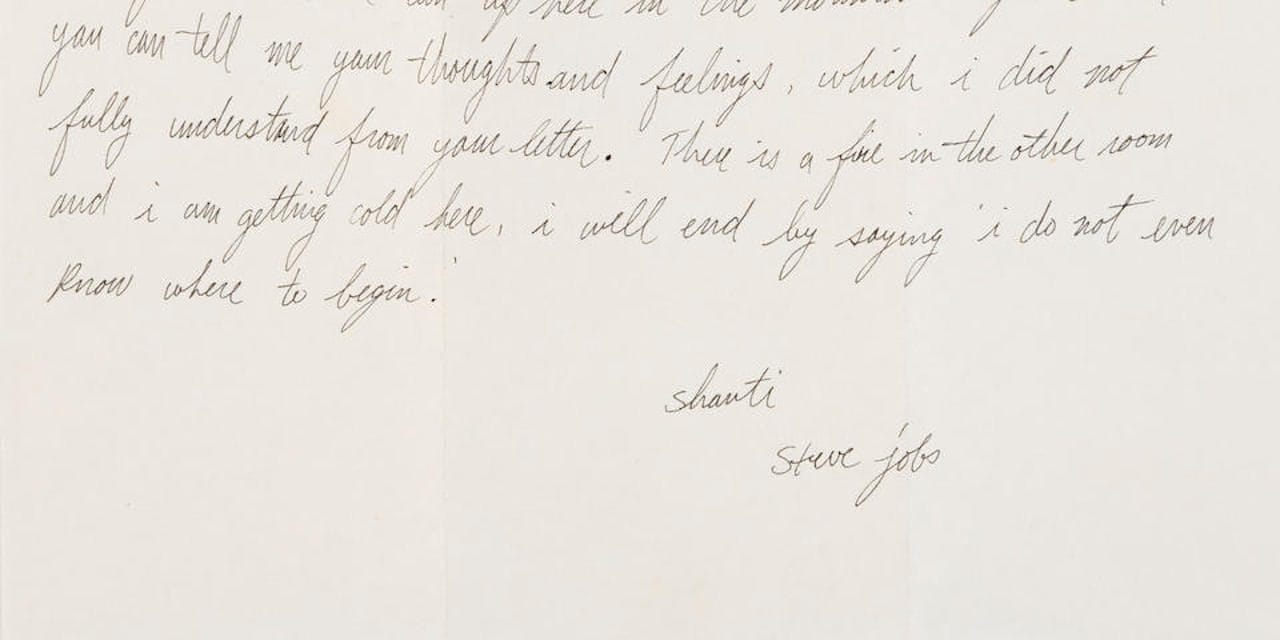 up here in the
you can tell me your thoughts and feelings, which i did not
fully understand from your letter. There is a fire in the other room
and i am getting cold here, i will end by saying 'i do not even
know where to begin.'
shanti
steve jobs